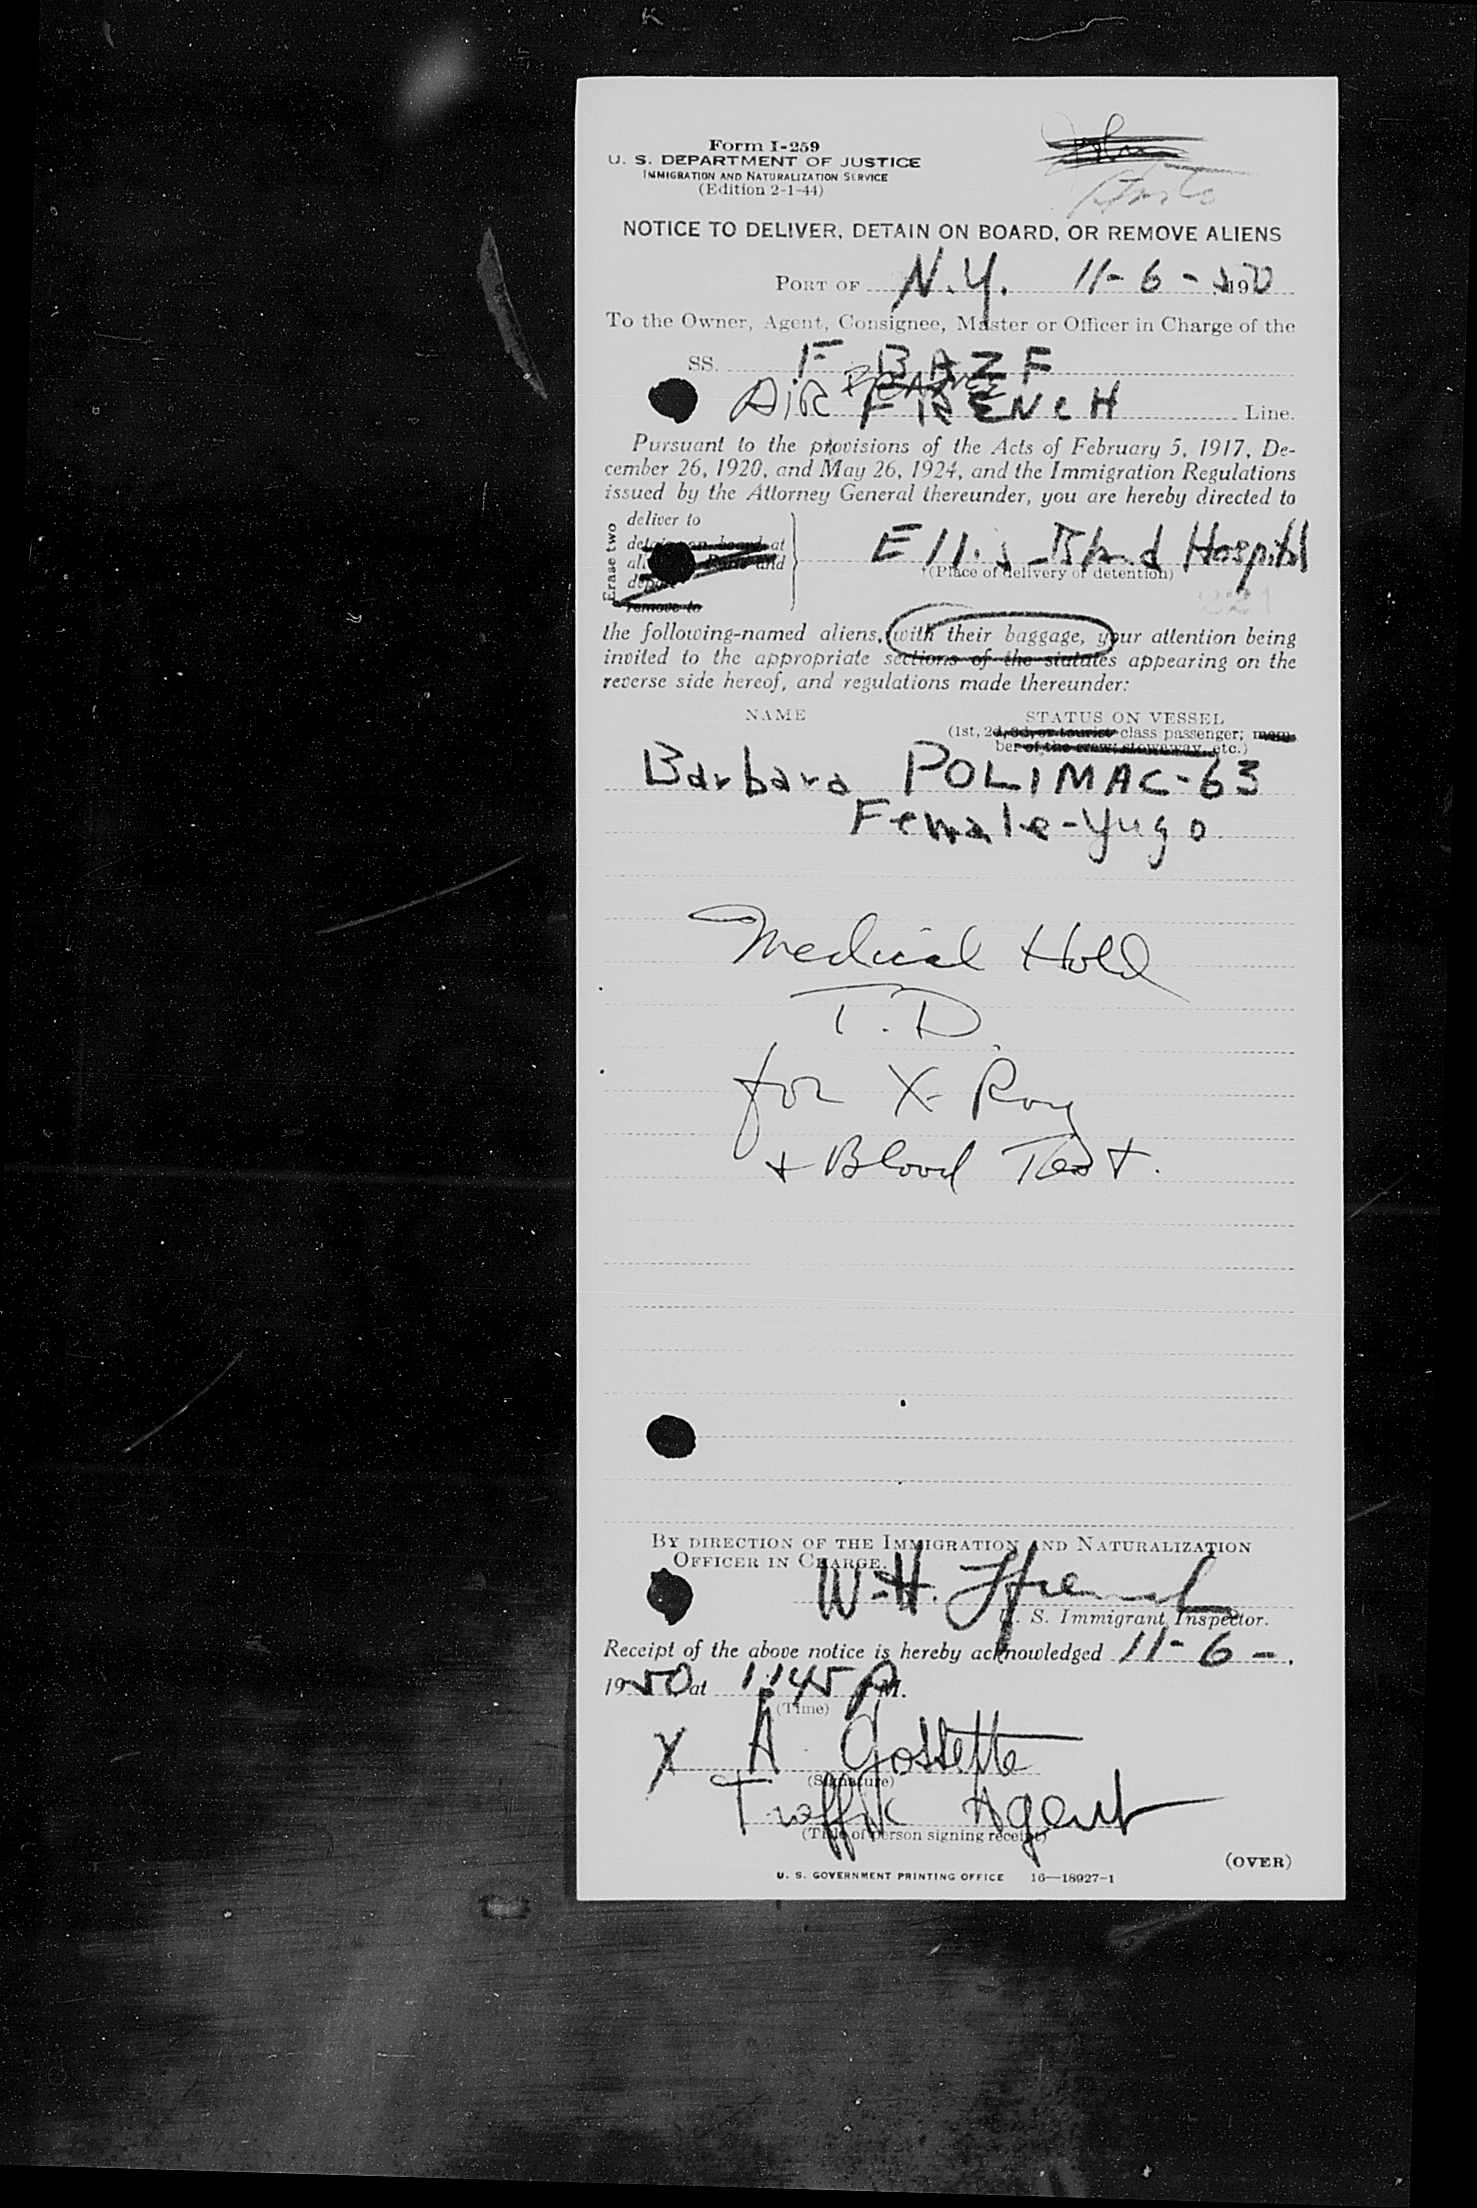 Form I-259
U. S. DEPARTMENT OF JUSTICE
IMMIGRATION AND NATURALIZATION SERVICE
(Edition 2-1-44)
NOTICE TO DELIVER, DETAIN ON BOARD, OR REMOVE ALIENS
PORT OF N.Y. 11-6-, 1950
To the Owner, Agent, Consignee, Master or Officer in Charge of the
SS. F BAZF
AIR FRANCE FRENCH Line.
Pursuant to the provisions of the Acts of February 5, 1917, De-
cember 26, 1920, and May 26, 1924, and the Immigration Regulations
issued by the Attorney General thereunder, you are hereby directed to
Erase two
deliver to
detain on board at
and
remove to
Ellis Island Hospital
†(Place of delivery or detention)
the following-named aliens, with their baggage, your attention being
invited to the appropriate sections of the statutes appearing on the
reverse side hereof, and regulations made thereunder:
NAME STATUS ON VESSEL
(1st, 2d, 3d, or tourist class passenger; mem-
ber of the crew; stowaway, etc.)
Barbara POLIMAC-63
Female-Yugo
Medical Hold
T.D.
for X-Ray
+ Blood Test.
BY DIRECTION OF THE IMMIGRATION AND NATURALIZATION
OFFICER IN CHARGE.
W.H. Ffrench
U. S. Immigrant Inspector.
Receipt of the above notice is hereby acknowledged 11-6-,
1950 at 1:45 P M.
(Time)
X A. Gossette
(Signature)
Traffic Agent
(Title of person signing receipt)
(OVER)
U. S. GOVERNMENT PRINTING OFFICE 16—18927-1